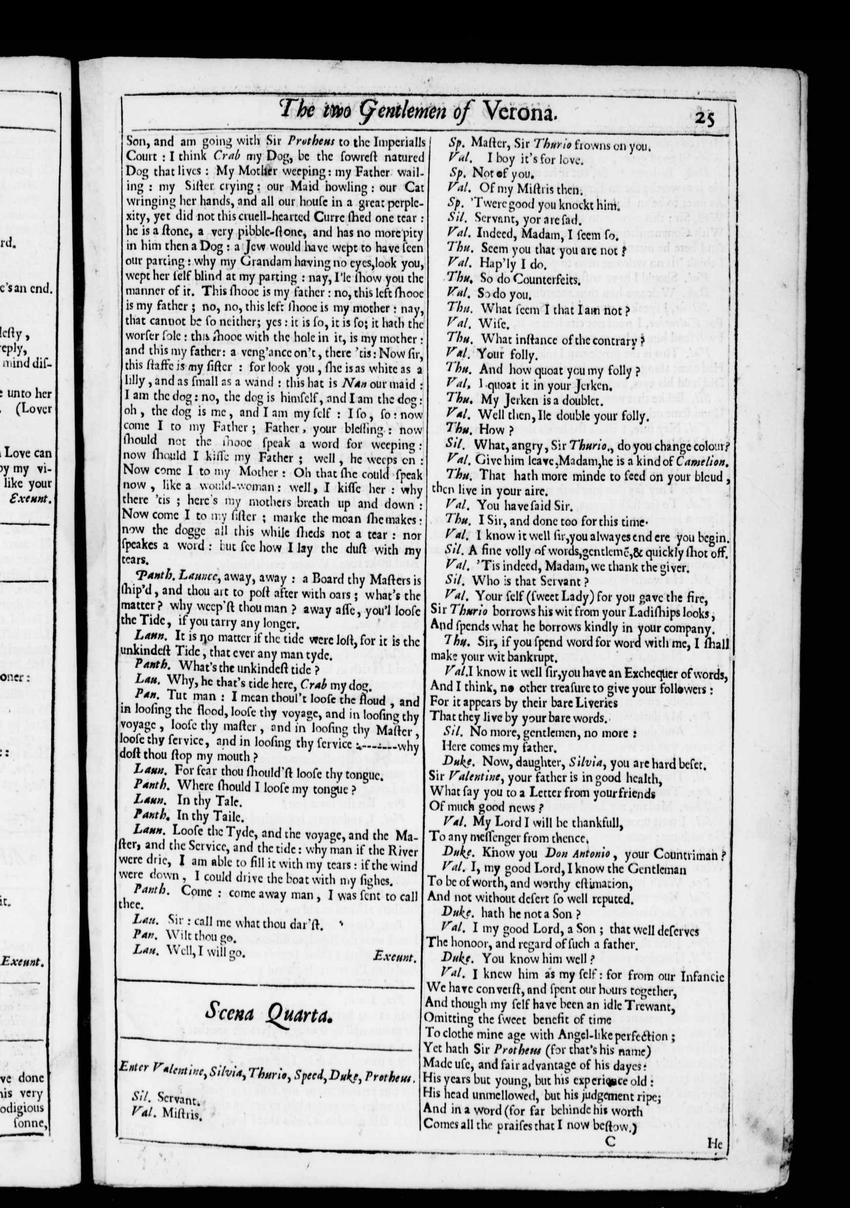 rd.
e's an end.
lesty,
reply,
mind dis-
e unto her
. (Lover
Love can
by my vi-
like your
Exeunt.
oner:
::
it.
Exeunt.
ve done
his very
odigious
sonne,
The two Gentlemen of Verona.
25
Son, and am going with Sir Protheus to the Imperialls
Court : I think Crab my Dog, be the sowrest natured
Dog that lives : My Mother weeping : my Father wail-
ing : my Sister crying : our Maid howling : our Cat
wringing her hands, and all our house in a great perple-
xity, yet did not this cruell-hearted Curre shed one tear :
he is a stone, a very pibble-stone, and has no more pity
in him then a Dog : a Jew would have wept to have seen
our parting : why my Grandam having no eyes, look you,
wept her self blind at my parting : nay, I'le show you the
manner of it. This shooe is my father : no, this left shooe
is my father ; no, no, this left shooe is my mother : nay,
that cannot be so neither; yes : it is so, it is so; it hath the
worser sole : this shooe with the hole in it, is my mother :
and this my father : a veng'ance on't, there 'tis : Now sir,
this staffe is my sister : for look you, she is as white as a
lilly, and as small as a wand : this hat is Nan our maid :
I am the dog : no, the dog is himself, and I am the dog :
oh, the dog is me, and I am my self : I so, so : now
come I to my Father ; Father, your blessing : now
should not the shooe speak a word for weeping :
now should I kisse my Father ; well, he weeps on :
Now come I to my Mother : Oh that she could speak
now, like a would-woman : well, I kisse her : why
there 'tis ; here's my mothers breath up and down :
Now come I to my sister ; marke the moan she makes :
now the dogge all this while sheds not a tear : nor
speakes a word : but see how I lay the dust with my
tears.
Panth. Launce, away, away : a Board thy Masters is
ship'd, and thou art to post after with oars ; what's the
matter? why weep'st thou man ? away asse, you'l loose
the Tide, if you tarry any longer.
Laun. It is no matter if the tide were lost, for it is the
unkindest Tide, that ever any man tyde.
Panth. What's the unkindest tide ?
Lau. Why, he that's tide here, Crab my dog.
Pan. Tut man : I mean thoul't loose the floud, and
in loosing the flood, loose thy voyage, and in loosing thy
voyage, loose thy master, and in loosing thy Master,
loose thy service, and in loosing thy service :-------why
dost thou stop my mouth ?
Laun. For fear thou should'st loose thy tongue.
Panth. Where should I loose my tongue ?
Laun. In thy Tale.
Panth. In thy Taile.
Laun. Loose the Tyde, and the voyage, and the Ma-
ster, and the Service, and the tide : why man if the River
were drie, I am able to fill it with my tears : if the wind
were down, I could drive the boat with my sighes.
Panth. Come : come away man, I was sent to call
thee.
Lau. Sir : call me what thou dar'st.
Pan. Wilt thou go.
Lau. Well, I will go. Exeunt.
Scena Quarta.
Enter Valentine, Silvia, Thurio, Speed, Duke, Protheus.
Sil. Servant.
Val. Mistris.
Sp. Master, Sir Thurio frowns on you.
Val. I boy it's for love.
Sp. Not of you.
Val. Of my Mistris then.
Sp. 'Twere good you knockt him.
Sil. Servant, yor are sad.
Val. Indeed, Madam, I seem so.
Thu. Seem you that you are not ?
Val. Hap'ly I do.
Thu. So do Counterfeits.
Val. So do you.
Thu. What seem I that I am not ?
Val. Wise.
Thu. What instance of the contrary ?
Val. Your folly.
Thu. And how quoat you my folly ?
Val. I quoat it in your Jerken.
Thu. My Jerken is a doublet.
Val. Well then, Ile double your folly.
Thu. How ?
Sil. What, angry, Sir Thurio., do you change colour?
Val. Give him leave, Madam, he is a kind of Camelion.
Thu. That hath more minde to feed on your bloud,
then live in your aire.
Val. You have said Sir.
Thu. I Sir, and done too for this time.
Val. I know it well sir, you alwayes end ere you begin.
Sil. A fine volly of words, gentlemē, & quickly shot off.
Val. 'Tis indeed, Madam, we thank the giver.
Sil. Who is that Servant ?
Val. Your self (sweet Lady) for you gave the fire,
Sir Thurio borrows his wit from your Ladiships looks,
And spends what he borrows kindly in your company.
Thu. Sir, if you spend word for word with me, I shall
make your wit bankrupt.
Val. I know it well sir, you have an Exchequer of words,
And I think, no other treasure to give your followers :
For it appears by their bare Liveries
That they live by your bare words.
Sil. No more, gentlemen, no more :
Here comes my father.
Duke. Now, daughter, Silvia, you are hard beset.
Sir Valentine, your father is in good health,
What say you to a Letter from your friends
Of much good news ?
Val. My Lord I will be thankfull,
To any messenger from thence.
Duke. Know you Don Antonio, your Countriman ?
Val. I, my good Lord, I know the Gentleman
To be of worth, and worthy estimation,
And not without desert so well reputed.
Duke. hath he not a Son ?
Val. I my good Lord, a Son ; that well deserves
The honoor, and regard of such a father.
Duke. You know him well ?
Val. I knew him as my self : for from our Infancie
We have converst, and spent our hours together,
And though my self have been an idle Trewant,
Omitting the sweet benefit of time
To clothe mine age with Angel-like perfection ;
Yet hath Sir Protheus (for that's his name)
Made use, and fair advantage of his dayes :
His years but young, but his experience old :
His head unmellowed, but his judgement ripe;
And in a word (for far behinde his worth
Comes all the praises that I now bestow.)
C
He